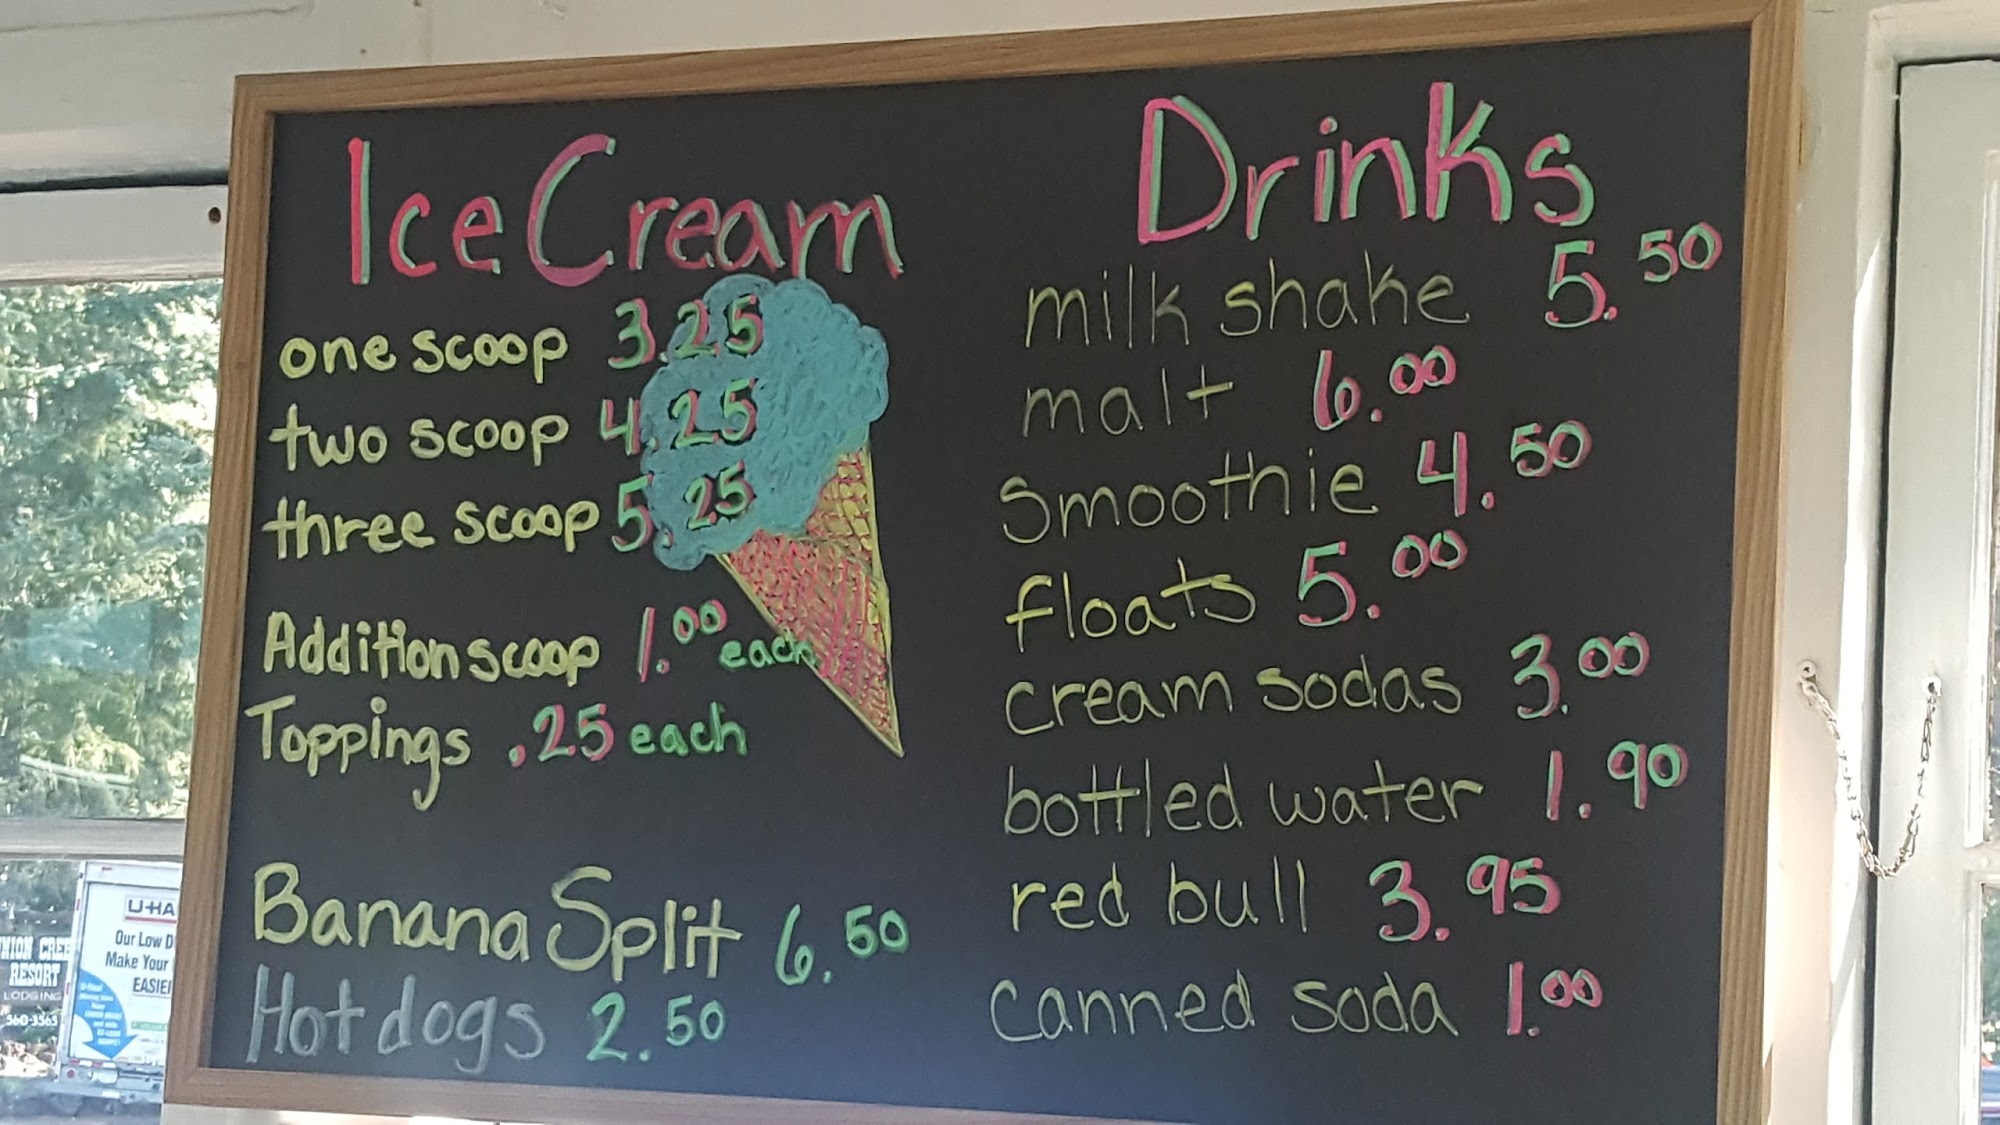 Ice Cream
one scoop 3.25
two scoop 4.25
three scoop 5.25
Addition scoop 1.00 each
Toppings .25 each
Banana Split 6.50
Hot dogs 2.50
Drinks
milk shake 5.50
malt 6.00
Smoothie 4.50
floats 5.00
cream sodas 3.00
bottled water 1.90
red bull 3.95
canned soda 1.00
U-HA
Our Low D
Make Your
EASIE
NION CREE
RESORT
LODGING
560-3565